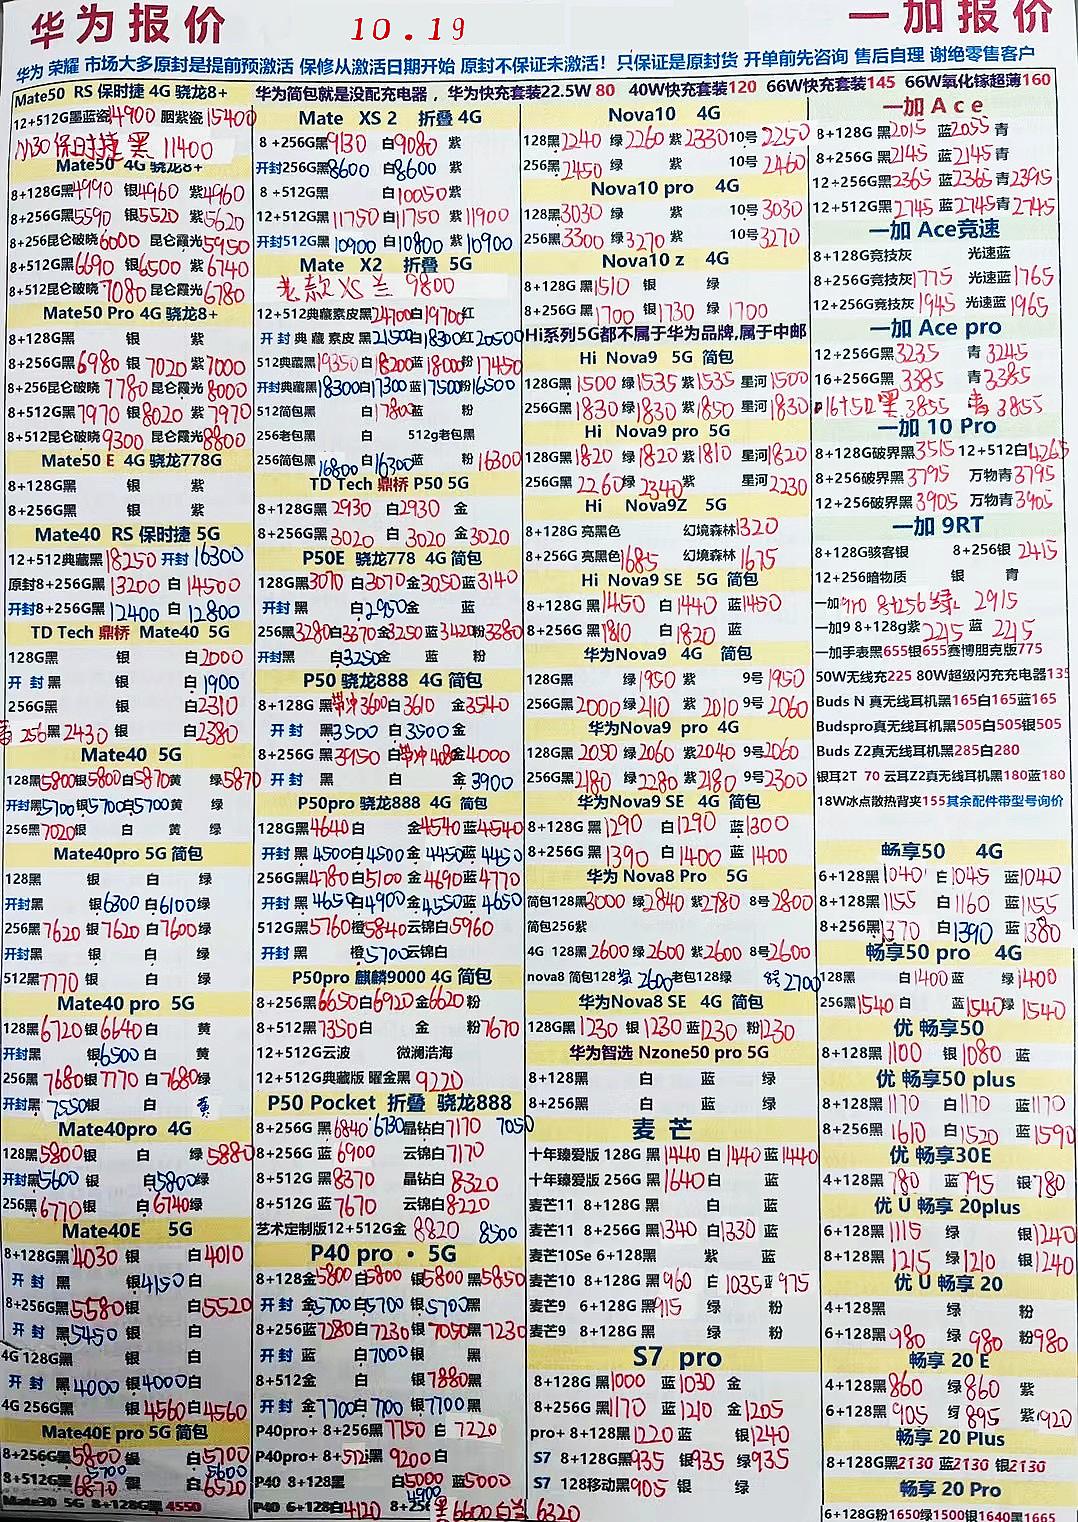 华为报价
10.19
一加报价
华为 荣耀 市场大多原封是提前预激活 保修从激活日期开始 原封不保证未激活！只保证是原封货 开单前先咨询 售后自理 谢绝零售客户
Mate50 RS 保时捷 4G 骁龙8+
12+512G墨蓝瓷14900 胭紫瓷15400
M30保时捷 黑 11400
Mate50 4G 骁龙8+
8+128G黑4990 银4960 紫4960
8+256G黑5590 银5520 紫5620
8+256昆仑破晓6000 昆仑霞光5950
8+512G黑6690 银6500 紫6740
8+512昆仑破晓7080 昆仑霞光6780
Mate50 Pro 4G 骁龙8+
8+128G黑 银 紫
8+256G黑6980 银7020 紫7000
8+256昆仑破晓7780 昆仑霞光8000
8+512G黑7970 银8020 紫7970
8+512昆仑破晓9300 昆仑霞光8800
Mate50 E 4G 骁龙778G
8+128G黑 银 紫
8+256G黑 银 紫
Mate40 RS 保时捷 5G
12+512典藏黑18250 开封16300
原封8+256G黑13200 白14500
开封8+256G黑12400 白12800
TD Tech 鼎桥 Mate40 5G
128G黑 银 白2000
开封黑 银 白1900
256G黑 银 白2310
256黑2430 银 白2380
Mate40 5G
128黑5800银5800白5870黄 绿5870
开封黑5700银5700白5700黄 绿
256黑7020银 白 黄 绿
Mate40pro 5G 简包
128黑 银 白 绿
开封黑 银6300白6100绿
256黑7620银7620白7600绿
开封黑 银 白 绿
512黑7770 银 白 绿
Mate40 pro 5G
128黑6720银6640白 黄
开封黑 银6500白 黄
256黑7680银7770白7680绿
开封黑7550银 白 黄
Mate40pro 4G
128黑5800银 白 绿5880
开封黑5600 银 白5800绿
256黑6770银 白6740绿
Mate40E 5G
8+128G黑4030 银 白4010
开封 黑 银4150白
8+256G黑5580银 白5520
开封 黑5450 银 白
4G 128G黑 银 白
开封 黑4000 银4000白
4G 256G黑 银4560白4560
Mate40E pro 5G 简包
8+256G黑5800 银 白5700
5700 5600
8+512G黑6870 银 白6520
Mate30 5G 8+128G黑4550
华为简包就是没配充电器，华为快充套装22.5W 80 40W快充套装120 66W快充套装145 66W氧化镓超薄160
Mate XS 2 折叠 4G
8+256G黑9130 白9080 紫
开封256G黑8600 白8600 紫
8+512G黑 白10050紫
12+512G黑11750白11750 紫11900
开封512G黑10900 白10800 紫10900
Mate X2 折叠 5G
老款XS 兰 9800
12+512典藏素皮黑24700白19700红
开封典藏素皮黑21500白18300红20500
512典藏黑19350白18200蓝18000粉17450
开封典藏黑18300白17300蓝17500粉16500
512简包黑 白17800蓝 粉
256老包黑 白 512g老包黑
256简包黑16800白16300蓝 粉16300
TD Tech 鼎桥 P50 5G
8+128G黑2930 白2930 金
8+256G黑3020 白3020 金3020
P50E 骁龙778 4G 简包
128G黑3070白3070金3050蓝3140
开封黑 白2950金 蓝
256黑3280白3370金3250蓝3420粉3380
开封黑 白3250金 蓝 粉
P50 骁龙888 4G 简包
8+128G 黑带冲3600白3610 金3540
开封 黑3500 白3500金
8+256G 黑3950 白带冲4080金4000
开封 黑 白 金3900
P50pro 骁龙888 4G 简包
128G黑4640白 金4540蓝4540
开封 黑4500白4500金4450蓝4450
256G黑4780白5100 金4690蓝4770
开封 黑4650白4900金4550蓝4650
512G黑5760橙5840云锦白5960
开封 黑 橙5700云锦白
P50pro 麒麟9000 4G 简包
8+256G黑6650白6920金6620粉
8+512G黑7350白 金 粉7670
12+512G云波 微澜浩海
12+512G典藏版 曜金黑9220
P50 Pocket 折叠 骁龙888
8+256G 黑6840 6730晶钻白7170 7050
8+256G 蓝6900 云锦白7170
8+512G 黑8370 晶钻白8320
8+512G 蓝7670 云锦白8220
艺术定制版12+512G金 8820 8500
P40 pro · 5G
8+128金5800白5800 银5800黑5850
开封 金5700白5700 银5700黑
8+256蓝7280白7230银7050黑7230
开封 蓝 白7000银 黑
8+512金 白 银7880黑
开封 金7700白7700银7700黑
P40pro+ 8+256黑7750白7220
P40pro+ 8+512黑9200白
P40 8+128黑 白5000 蓝5000
4900
P40 6+128白4120 8+256黑6600白兰6320
Nova10 4G
128黑2240 绿2260 紫2330 10号2250
256黑2450 绿 紫 10号2460
Nova10 pro 4G
128黑3030 绿 紫 10号3030
256黑3300 绿3270 紫 10号3270
Nova10 z 4G
8+128G 黑1510 银 绿
8+256G 黑1700 银1730 绿1700
Hi系列5G都不属于华为品牌,属于中邮
Hi Nova9 5G 简包
128G黑1500 绿1535 紫1535 星河1500
256G黑1830 绿1830 紫1850 星河1830
Hi Nova9 pro 5G
128G黑1820 绿1820 紫1810 星河1820
256G黑2260绿2340紫 星河2230
Hi Nova9Z 5G
8+128G 亮黑色 幻境森林1320
8+256G 亮黑色1685 幻境森林1675
Hi Nova9 SE 5G 简包
8+128G 黑1450 白1440 蓝1450
8+256G 黑1810 白1820 蓝
华为Nova9 4G 简包
128G黑 绿1950 紫 9号1950
256G黑2000绿2110 紫2010 9号2060
华为Nova9 pro 4G
128G黑2050 绿2060 紫2040 9号2060
256G黑2180 绿2280 紫2180 9号2300
华为Nova9 SE 4G 简包
8+128G 黑1290 白1290 蓝1300
8+256G 黑1390 白1400 蓝1400
华为Nova8 Pro 5G
简包128黑3000 绿2840 紫2780 8号2800
简包256紫
4G 128黑2600绿2600 紫2600 8号2600
nova8 简包128紫2600老包128绿 8号2700
华为Nova8 SE 4G 简包
128G黑1230 银1230 蓝1230 粉1230
华为智选 Nzone50 pro 5G
8+128黑 白 蓝 绿
8+256黑 白 蓝 绿
麦芒
十年臻爱版 128G 黑1440 白1440 蓝1440
十年臻爱版 256G 黑1640白 蓝
麦芒11 8+128G 黑 白 蓝
麦芒11 8+256G 黑1340 白1330 蓝
麦芒10Se 6+128黑 紫 蓝
麦芒10 8+128G 黑960 白1035蓝975
麦芒9 6+128G 黑915 绿 粉
麦芒9 8+128G 黑 绿 粉
S7 pro
8+128G 黑1000 蓝1030 金
8+256G 黑1170 蓝1210 金1205
pro+ 8+128黑1220蓝 银1240
S7 8+128G黑935 银935 绿935
S7 128移动黑905 银 绿
一加 Ace
8+128G 黑2015 蓝2055 青
8+256G 黑2145 蓝2145 青
12+256G黑2365 蓝2365 青2395
12+512G黑2745 蓝2745青2745
一加 Ace竞速
8+128G竞技灰 光速蓝
8+256G竞技灰1775 光速蓝1765
12+256G竞技灰1945 光速蓝1965
一加 Ace pro
12+256G黑3235 青3245
16+256G黑3385 青3385
16+512 黑3855 青3855
一加 10 Pro
8+128G破界黑3515 12+512白4265
8+256破界黑3795 万物青3795
12+256破界黑3905 万物青3905
一加 9RT
8+128G骇客银 8+256银2415
12+256暗物质 银 青
一加9pro 8+256绿 2915
一加9 8+128g紫2215 蓝2215
一加手表黑655银655赛博朋克版775
50W无线充225 80W超级闪充充电器135
Buds N 真无线耳机黑165白165蓝165
Budspro真无线耳机黑505白505银505
Buds Z2真无线耳机黑285白280
银耳2T 70 云耳Z2真无线耳机黑180蓝180
18W冰点散热背夹155其余配件带型号询价
畅享50 4G
6+128黑1040 白1045 蓝1040
8+128黑1155 白1160 蓝1155
8+256黑1370 白1390 蓝1380
畅享50 pro 4G
128黑 白1400蓝 绿1400
256黑1540白 蓝1540绿1540
优 畅享50
8+128黑1100 银1080 蓝
优 畅享50 plus
8+128黑1170 白1170 蓝1170
8+256黑1610 白1520 蓝1590
优 畅享30E
4+128黑780 蓝795 银780
优 U 畅享 20plus
6+128黑1115 绿 银1240
8+128黑1215 绿1210 银1240
优 U 畅享 20
4+128黑 绿 粉
6+128黑980 绿980 粉980
畅享 20 E
4+128黑860 绿860 紫
6+128黑905 绿895 紫920
畅享 20 Plus
8+128G黑2130 蓝2130 银2130
畅享 20 Pro
6+128G粉1650绿1500银1640黑1665